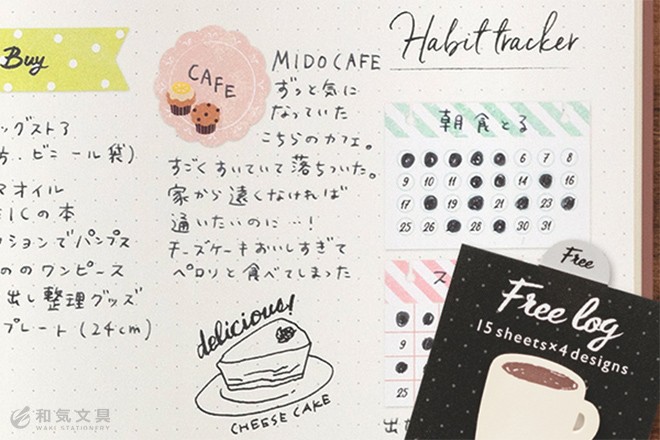 Buy
ッグストア
ビニール袋)
マオイル
ICの本
クションでパンプス
ののワンピース
出し整理グッズ
プレート(24cm)
CAFE
MIDO CAFE
ずっと気に
なっていた
こちらのカフェ。
すごくすいていて落ちついた。
家から遠くなければ
通いたいのに…!
チーズケーキおいしすぎて
ペロリと食べてしまった
delicious!
CHEESE CAKE
Habit tracker
朝食とる
6 7 8
9 16
17
25 26 28 30 31
ス
9
25
出
Free
Free log
15 sheets×4 designs
和気文具
WAKI STATIONERY